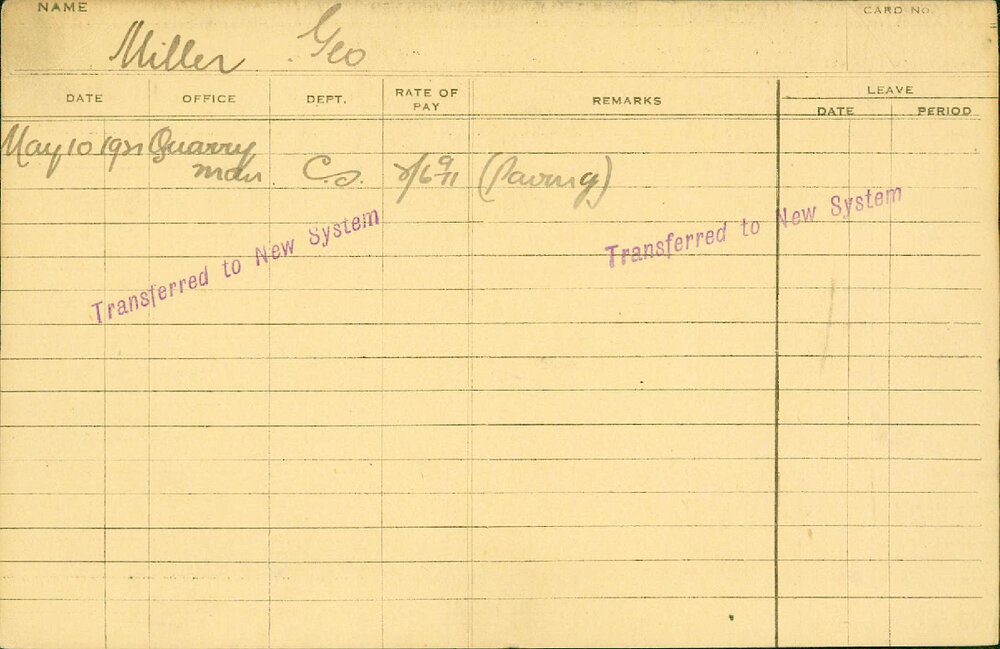 NAME
CARD No.
Miller Geo
DATE OFFICE DEPT. RATE OF PAY REMARKS LEAVE
DATE PERIOD
May 10 1921 Quarry
man C.S. (Paving)
Transferred to New System
Transferred to New System